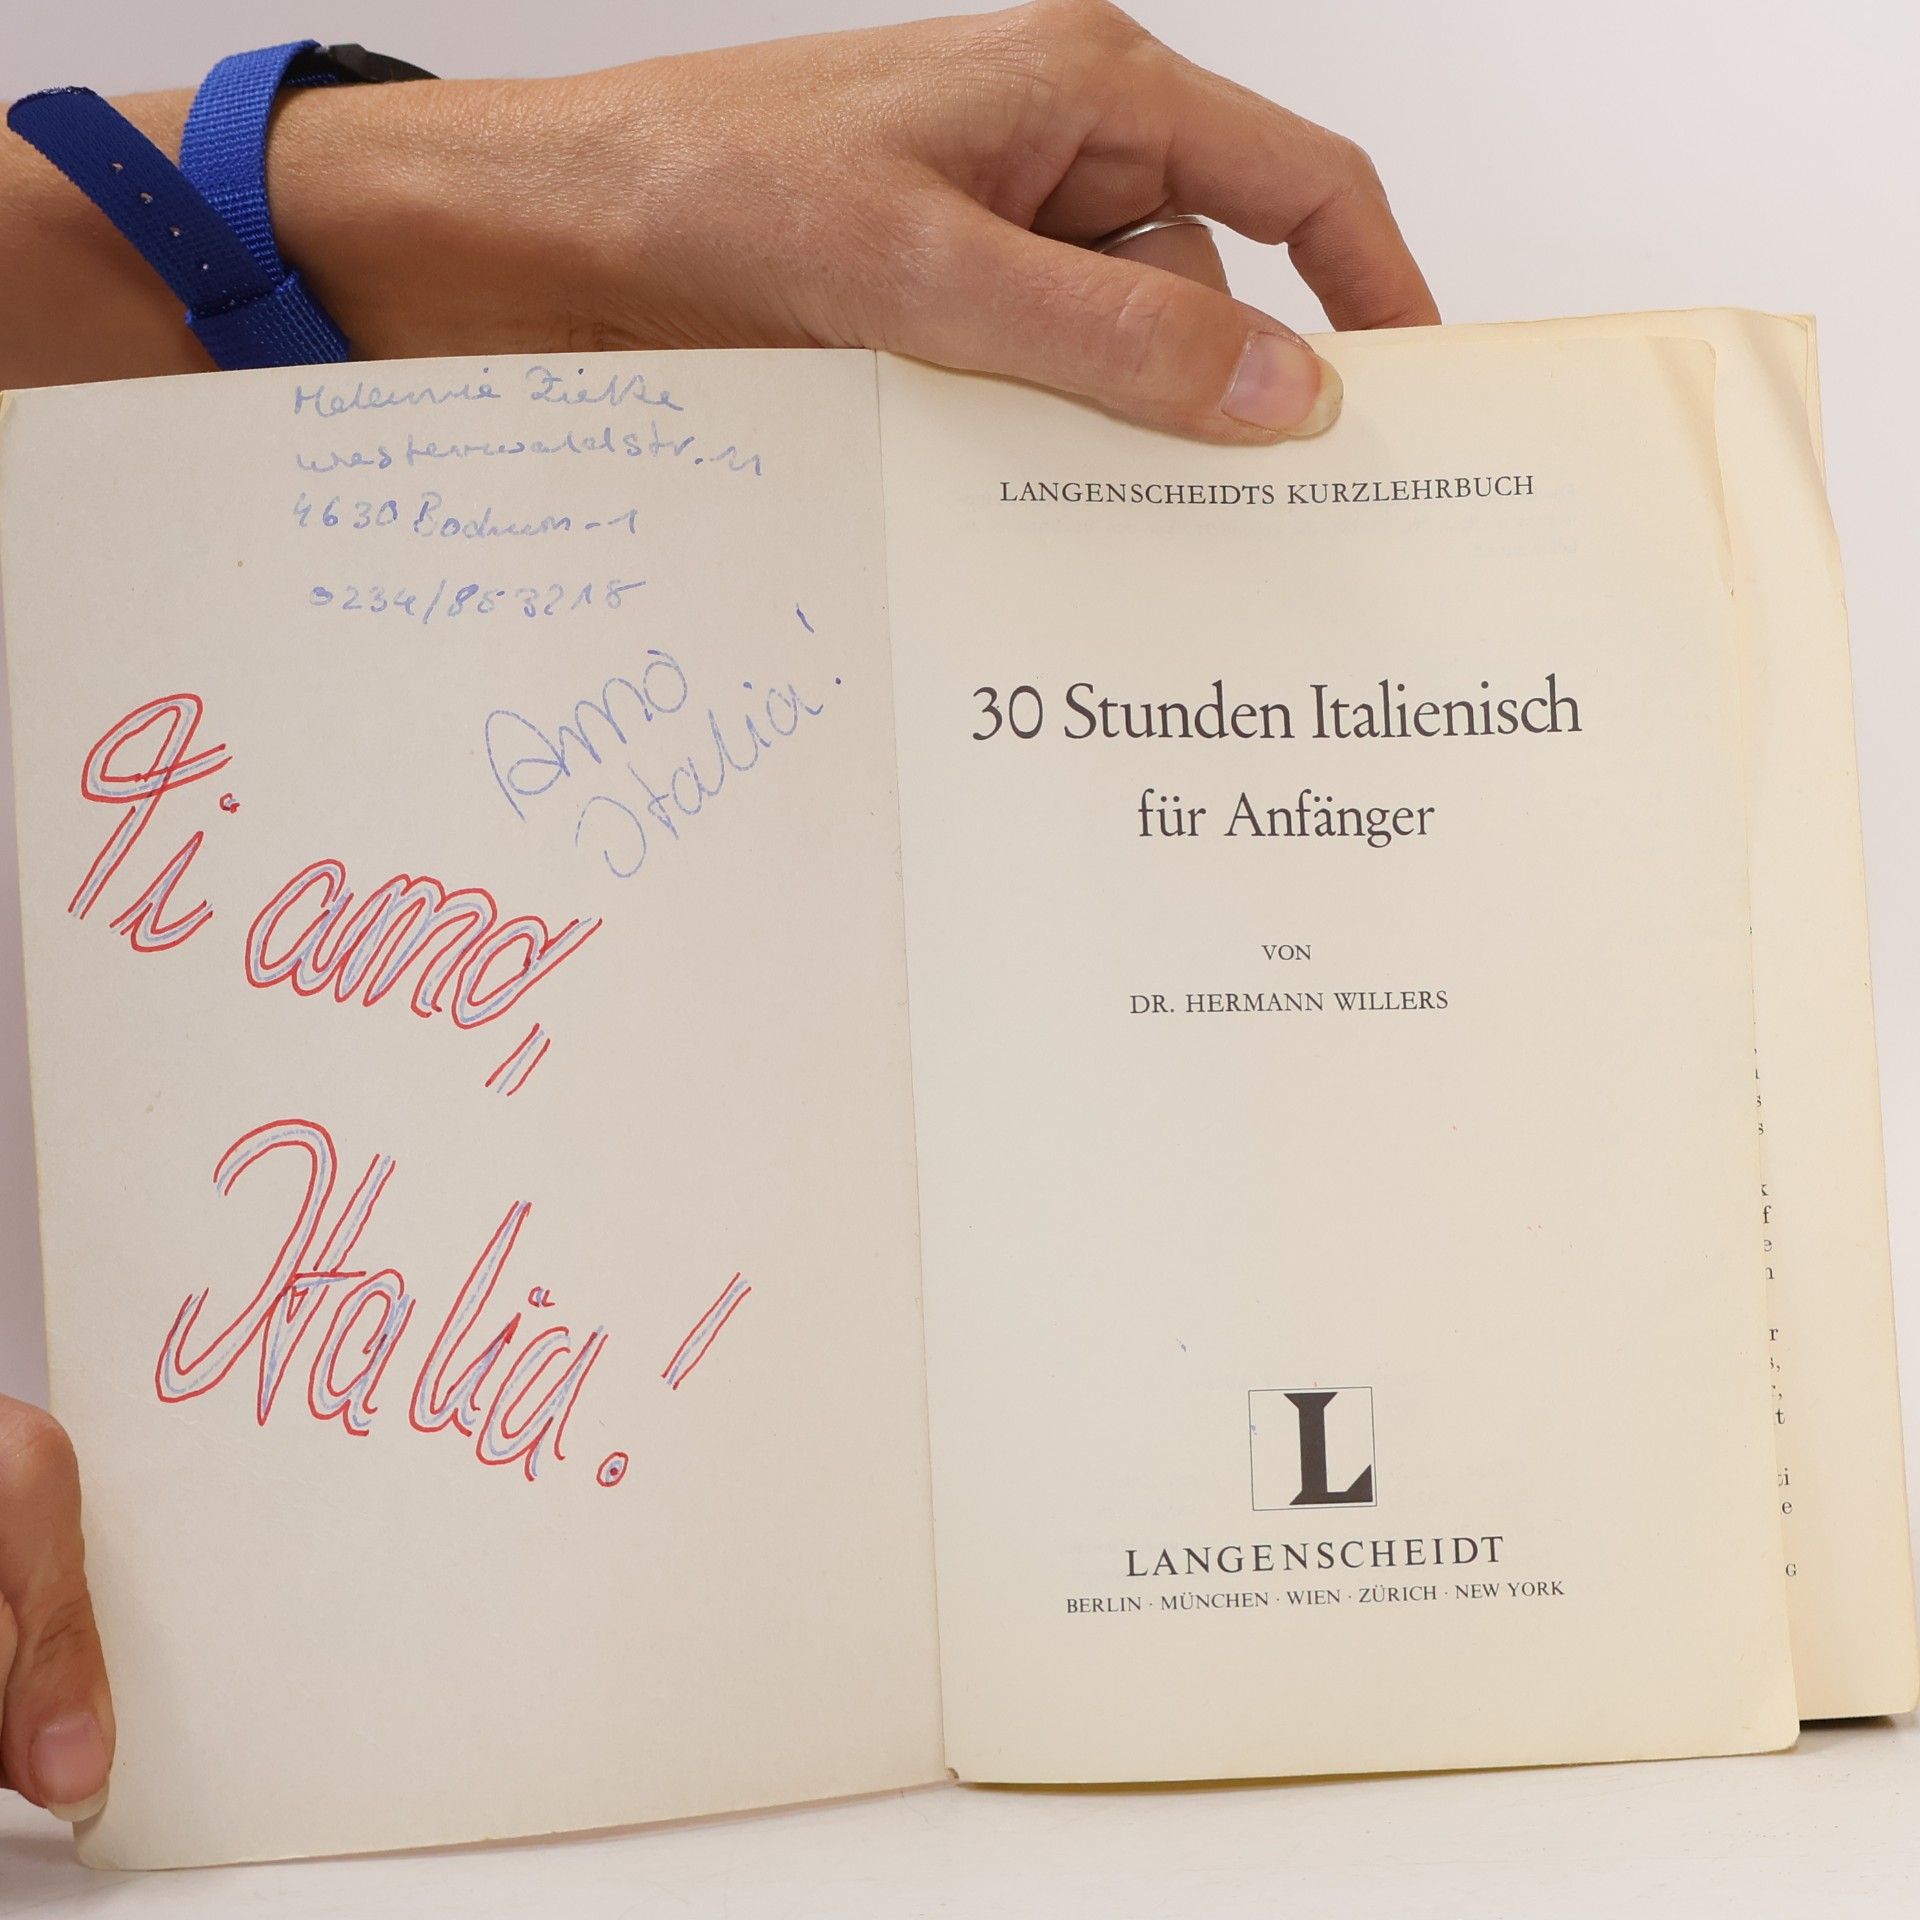 Melannie Zielke
Westerwaldstr. 11
4630 Bochum-1
0234/853218
Amo
Italia!
Ti amo,
Italia!
LANGENSCHEIDTS KURZLEHRBUCH
30 Stunden Italienisch
für Anfänger
VON
DR. HERMANN WILLERS
L
LANGENSCHEIDT
BERLIN · MÜNCHEN · WIEN · ZÜRICH · NEW YORK